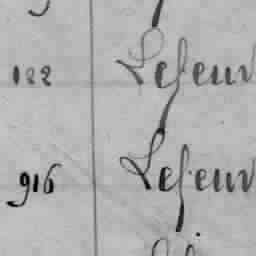 122 Lefeuv
916 Lefeuv